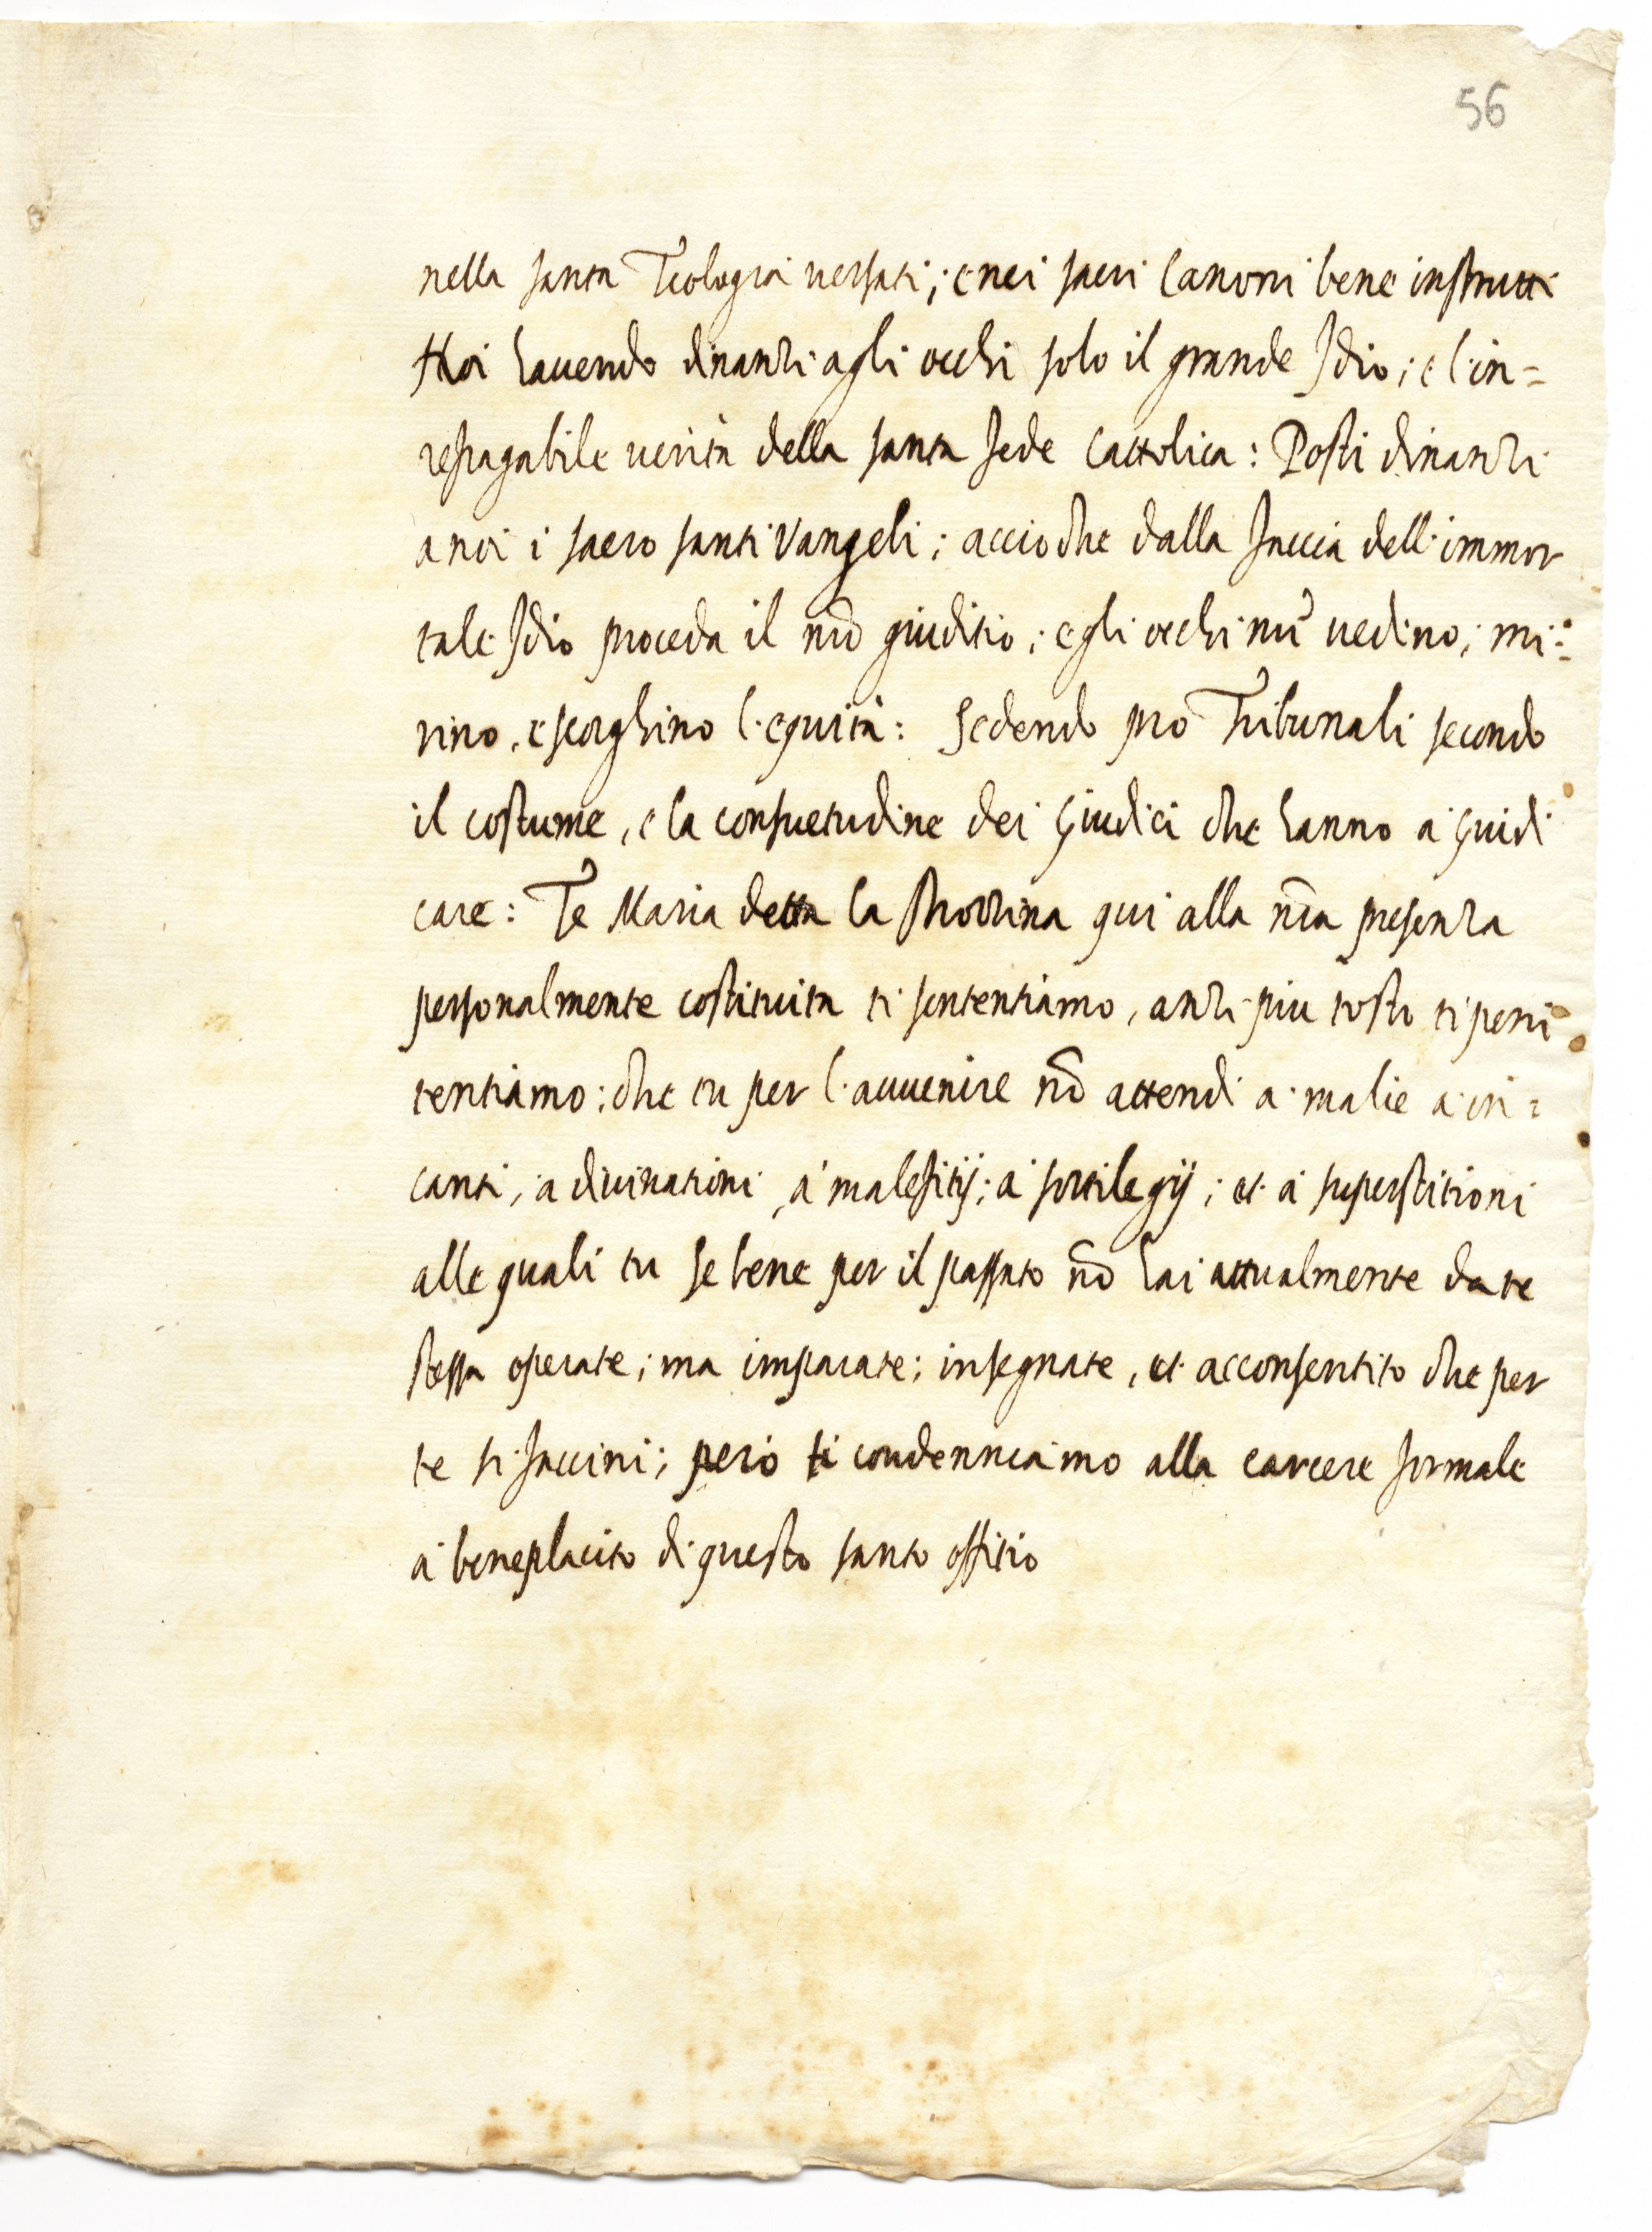 56
nella santa Teologia uersati; e nei sacri Canoni bene instrutti
Noi hauendo dinanzi agli occhi solo il grande Idio; e l'in=
refragabile uerità della santa fede Cattolica: Posti dinanzi
a noi i sacro santi Vangeli; accioche dalla faccia dell'immor
tale Idio proceda il nr̃o giuditio; e gli occhi nr̃i uedino; mi=
rino, e scorghino l'equità: Sedendo pro Tribunali secondo
il costume, e la consuetudine dei Giudici che hanno à Giudi
care: Te Maria detta la strozzina qui alla nr̃a presenza
personalmente costituita ti sententiamo, anzi piu tosto ti peni
tentiamo; che tu per l'auuenire nõ attendi a malie a in=
canti, a diuinationi, à malefitij; à sortilegij; et à superstitioni
alle quali tu se bene per il passato nõ hai attualmente da te
stessa operate; ma imparate; insegnate, et acconsentito che per
te si faccini; però ti condenniamo alla carcere formale
à beneplacito di questo santo offitio